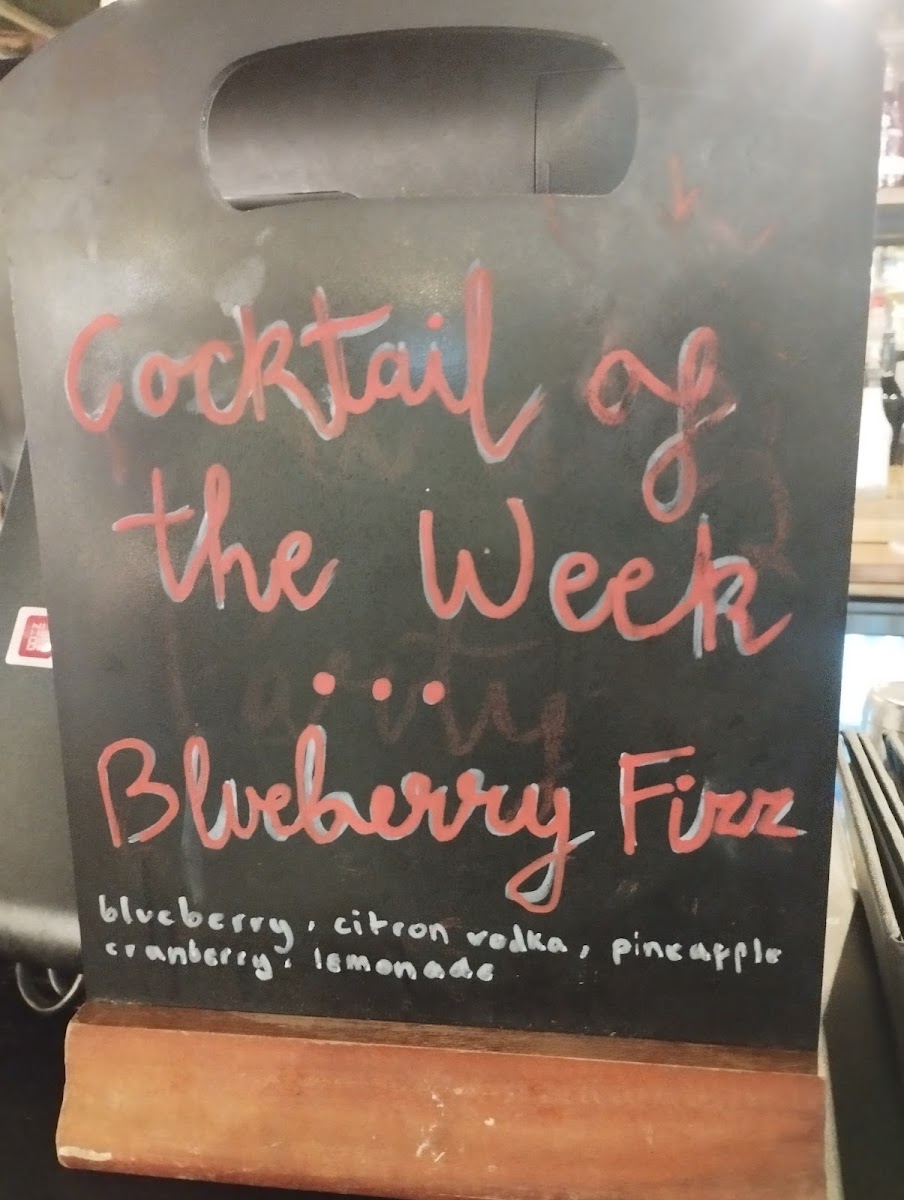 Cocktail of
the Week
...
Blueberry Fizz
blueberry, citron vodka, pineapple
cranberry, lemonade